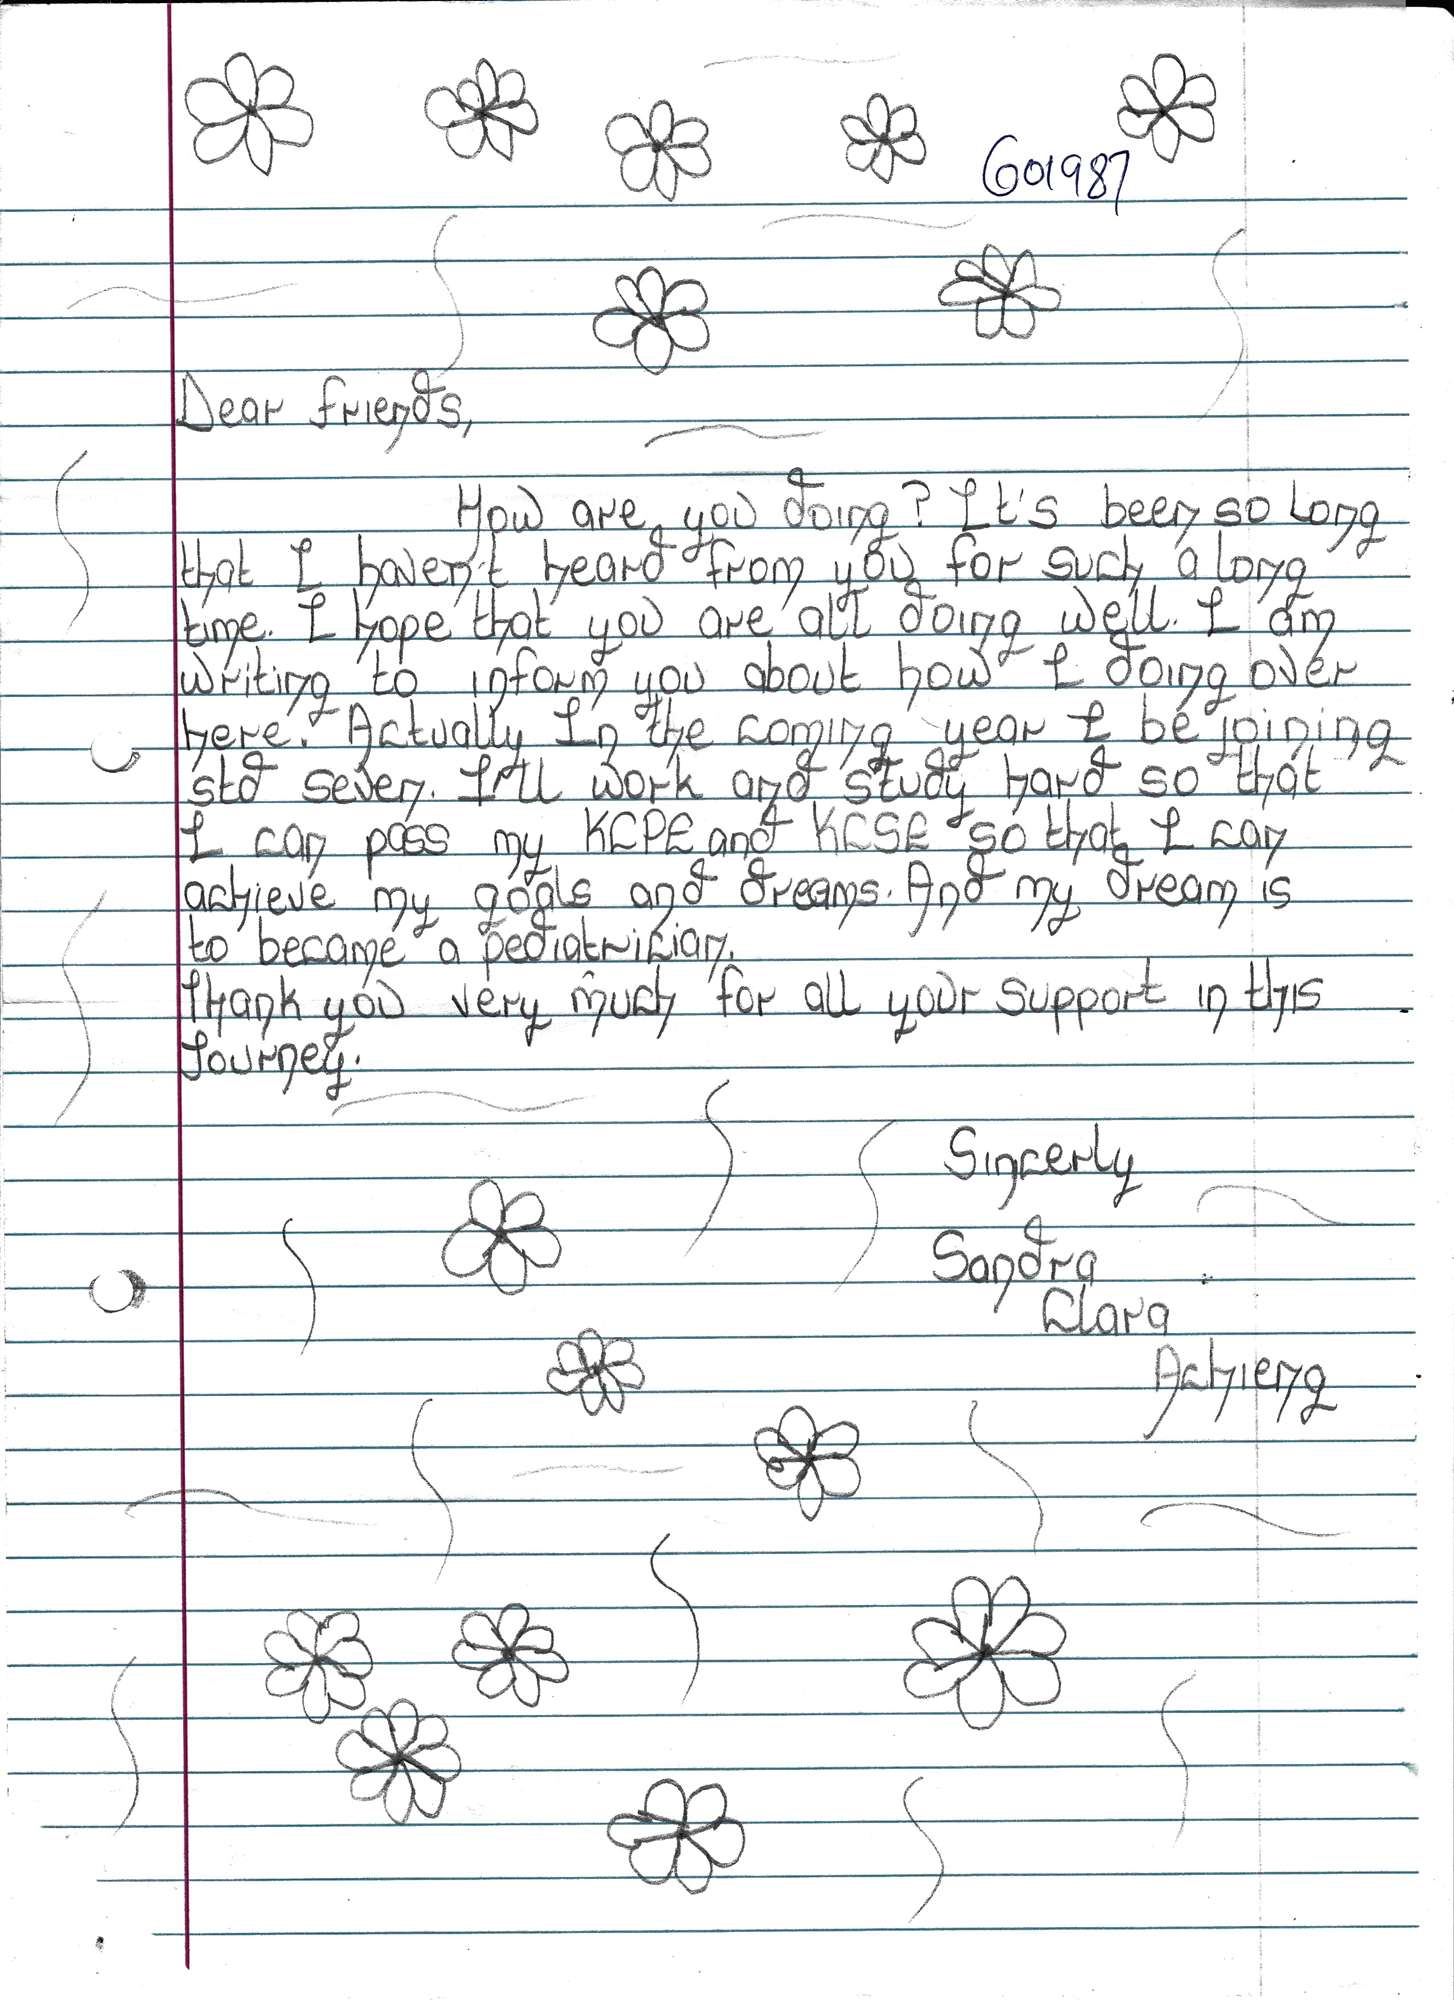 G01987
Dear friends,
How are you doing? It's been so long
that I haven't heard from you for such a long
time. I hope that you are all doing well. I am
writing to inform you about how I doing over
here. Actually In the coming year I be joining
std seven. I'll work and study hard so that
I can pass my KCPE and KCSE so that I can
achieve my goals and dreams. And my dream is
to became a pediatrician.
Thank you very much for all your support in this
Journey.
Sincerly
Sandra
Clara
Achieng